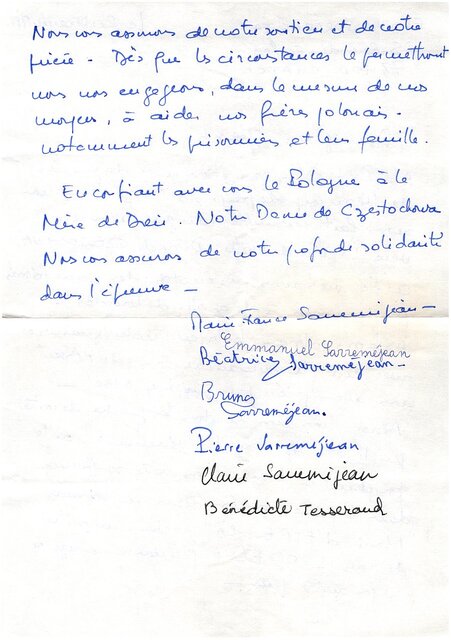 Nous vous assurons de notre soutien et de notre
prière - Dès que les circonstances le permettront
nous nous engageons, dans la mesure de nos
moyens, à aider nos frères polonais -
notamment les prisonniers et leur famille.
En confiant avec vous la Pologne à la
Mère de Dieu. Notre Dame de Czestochowa
Nous vous assurons de notre profonde solidarité
dans l'épreuve -
Marie France Sarreméjean -
Emmanuel Sarreméjean
Béatrice Sarreméjean -
Bruno
Sarreméjean.
Pierre Sarreméjean
Claire Sarreméjean
Bénédicte Tesseraud